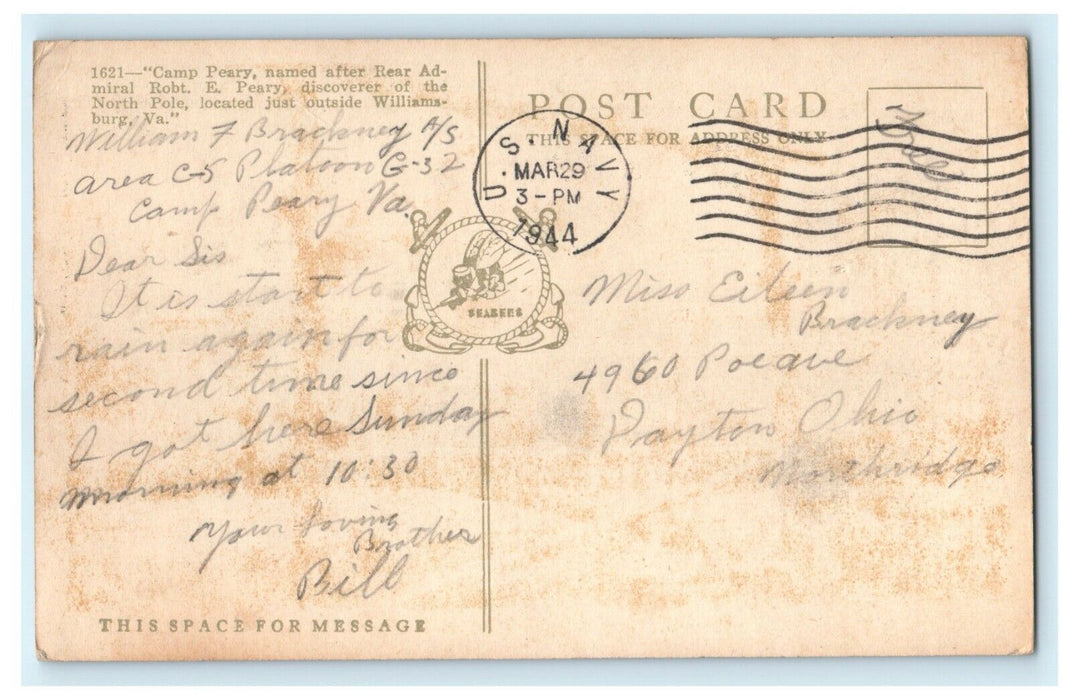 1621—"Camp Peary, named after Rear Ad-
miral Robt. E. Peary, discoverer of the
North Pole, located just outside Williams-
burg, Va."
William F Brackney A/S
Area C-5 Platoon G-32
Camp Peary Va.
Dear Sis
It is start to
rain again for
second time since
I got here Sunday
morning at 10:30
Your Loving
Brother
Bill
THIS SPACE FOR MESSAGE
POST CARD
THIS SPACE FOR ADDRESS ONLY
U.S. NAVY
MAR 29
3-PM
1944
Free
SEABEES
Miss Eileen
Brackney
4960 Poe ave
Dayton Ohio
Northridge